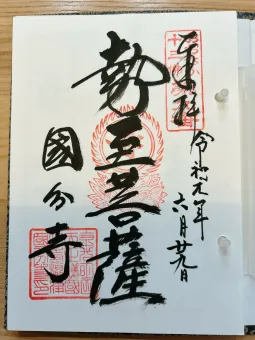 奉拝
令和元年
六月廿九日
勢至菩薩
國分寺